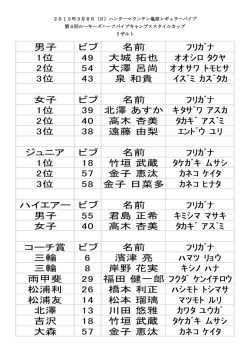 2015年3月8日（日）ハンターマウンテン塩原レギュラーパイプ
第4回ルーキーズハーフパイプキャンプ×スタイルカップ
リザルト
男子 ビブ 名前 ﾌﾘｶﾞﾅ
1位 49 大城 拓也 オオシロ タクヤ
2位 54 大澤 呂尚 オオサワ トモヒサ
3位 43 泉 和貴 イズミ カズタカ
女子 ビブ 名前 ﾌﾘｶﾞﾅ
1位 39 北澤 あすか キタザワ アスカ
2位 40 高木 杏美 タカギ アズミ
3位 38 遠藤 由梨 エンドウ ユリ
ジュニア ビブ 名前 ﾌﾘｶﾞﾅ
1位 18 竹垣 武蔵 タケガキ ムサシ
2位 57 金子 恵汰 カネコ ケイタ
3位 58 金子 日菜多 カネコ ヒナタ
ハイエアー ビブ 名前 ﾌﾘｶﾞﾅ
男子 55 君島 正希 キミシマ マサキ
女子 40 高木 杏美 タカギ アズミ
コーチ賞 ビブ 名前 ﾌﾘｶﾞﾅ
三輪 6 濱津 亮 ハマツ リョウ
三輪 8 岸野 花実 キシノ ハナ
雨甲斐 29 福田 健一郎 フクダ ケンイチロウ
松浦利 26 橋本 利正 ハシモト トシマサ
松浦友 14 松本 瑠璃 マツモト ルリ
北澤 13 川田 悠雅 カワタ ユウガ
吉沢 18 竹垣 武蔵 タケガキ ムサシ
大森 57 金子 恵汰 カネコ ケイタ